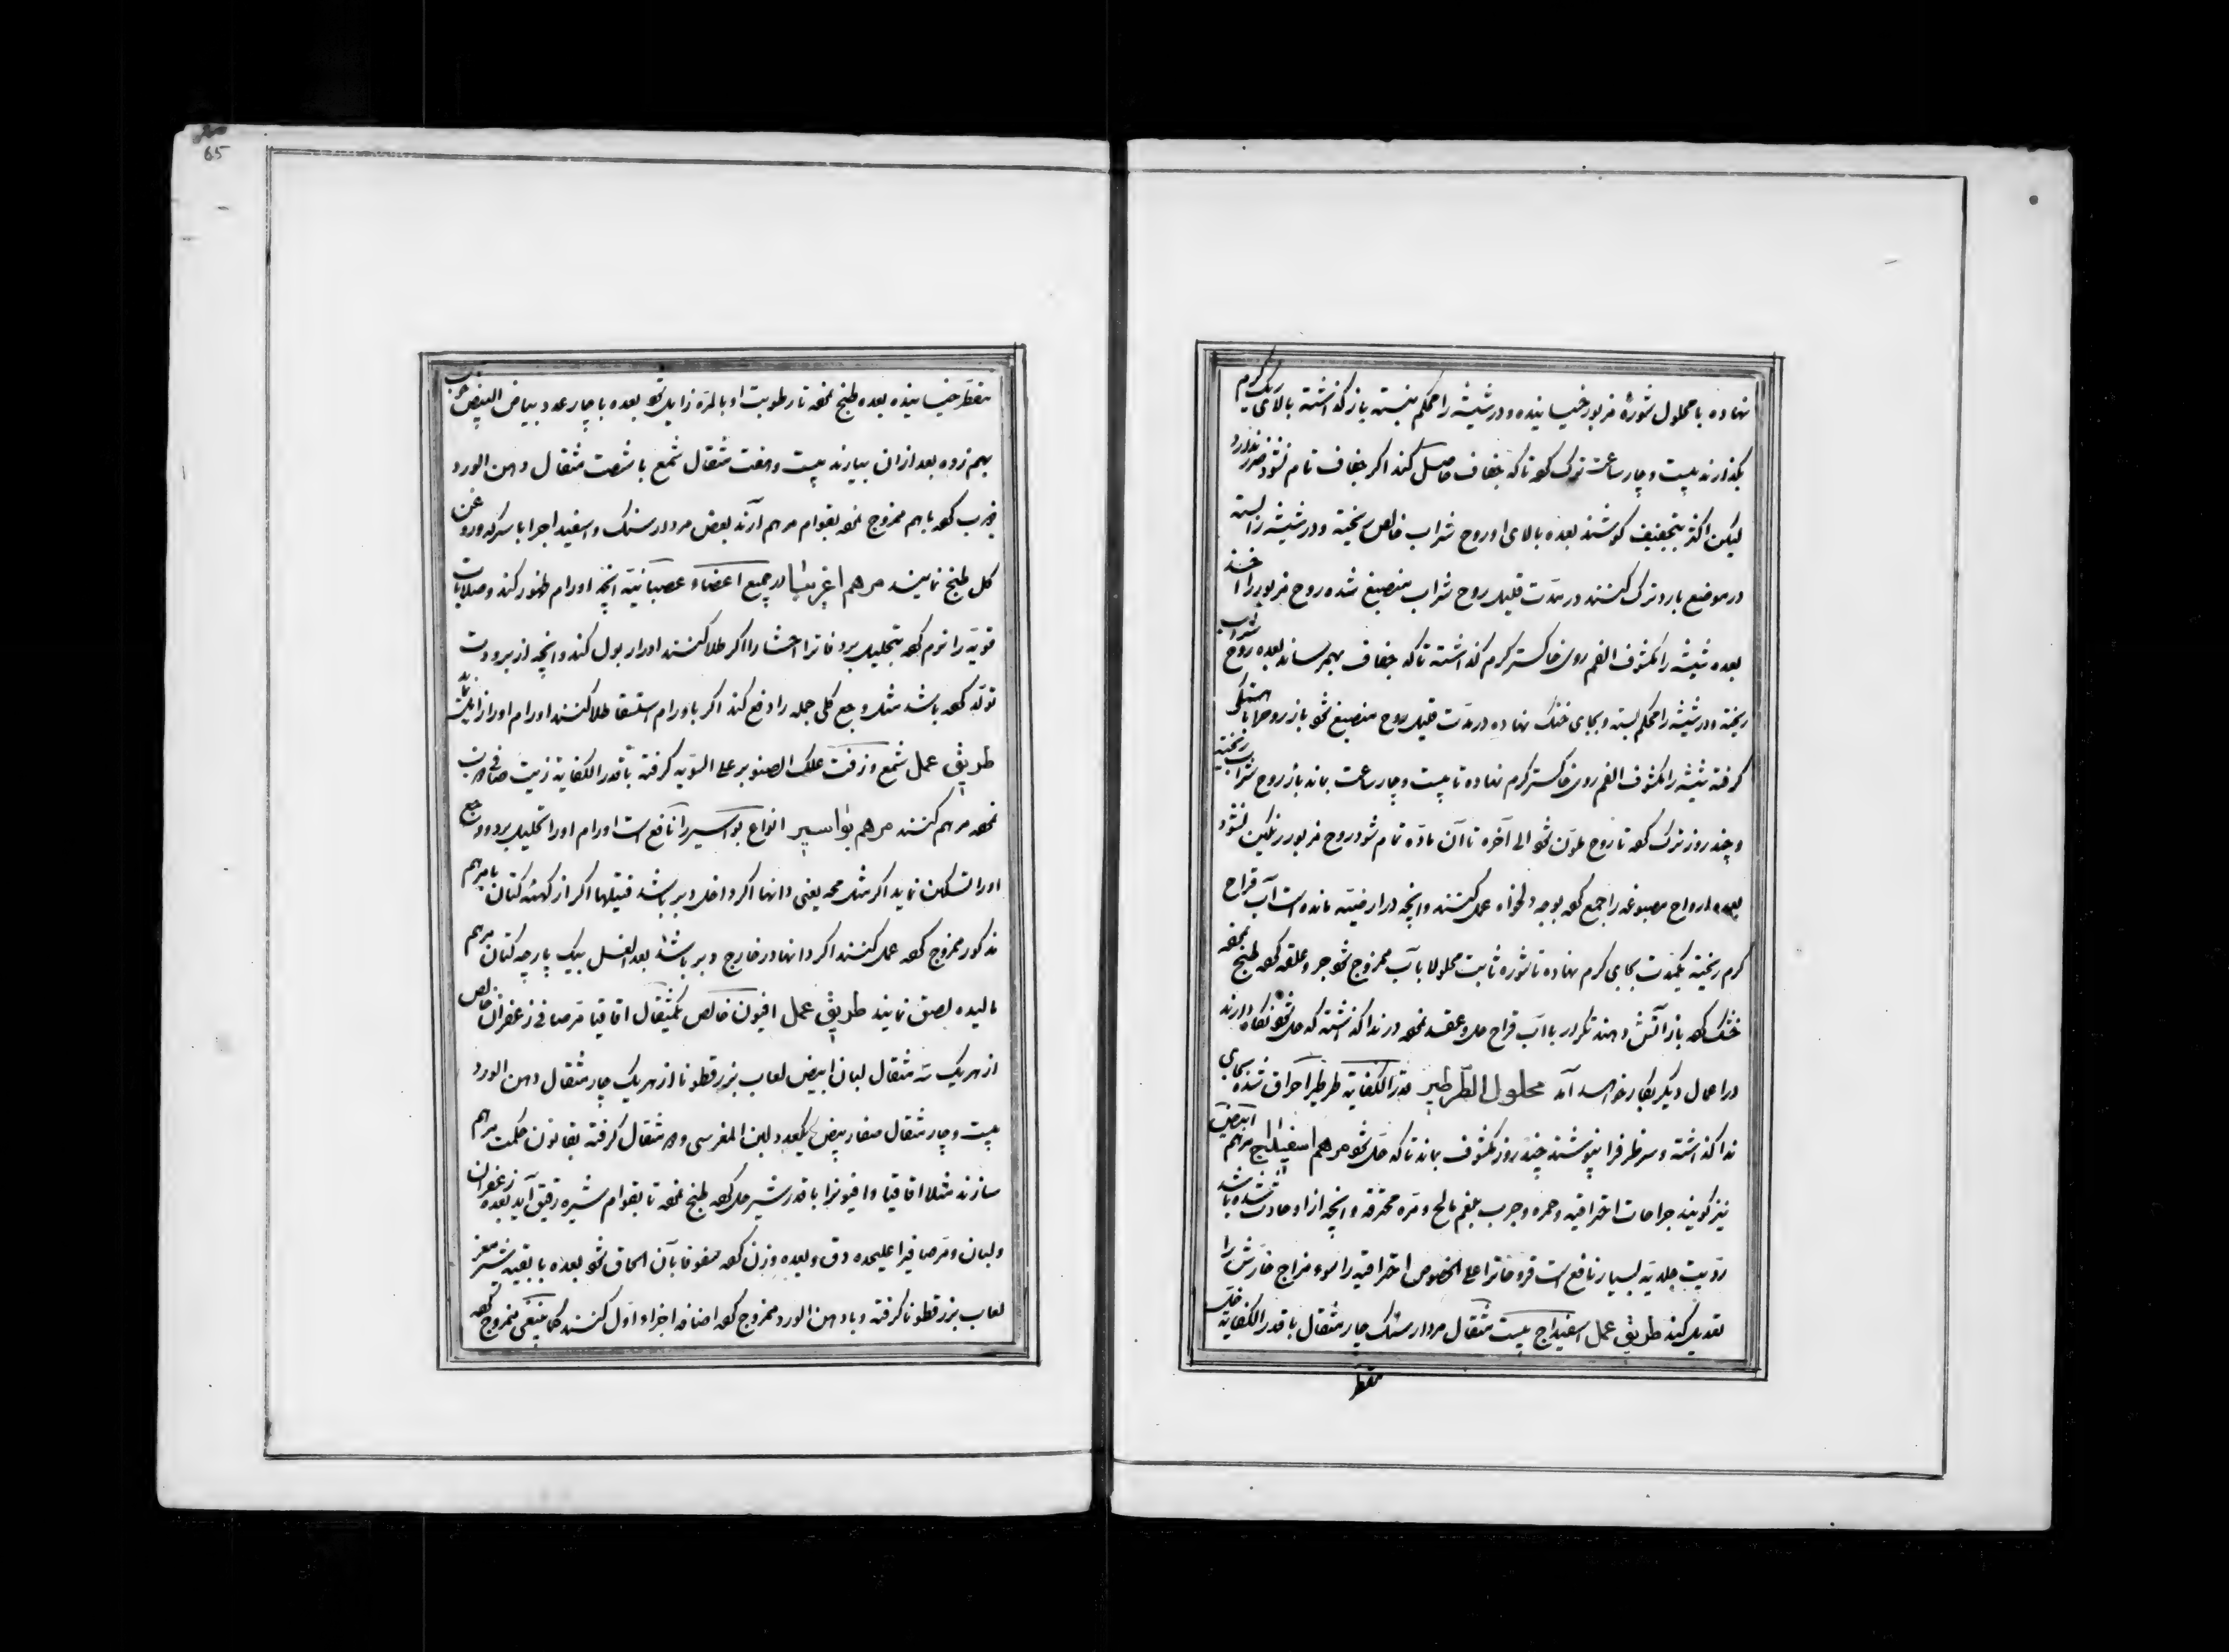 نهاده با محلول شورهٔ مزبور خیسانیده و در شیشه را محکم بسته باز گذاشته بالای ریک گرم
بگذارند بیست و چار ساعت ترک کرده تا که جفاف حاصل کند اگر جفاف تام نشود ضرر ندارد
لیکن اکثر بتجفیف کوشند بعده بالای او روح شراب خالص ریخته و در شیشه را بسته
در موضع بارد ترک کنند در مدّت قلیل روح شراب منصبغ شده روح مزبور را اخذ
بعده شیشه را مکشوف الفم روی خاکستر گرم گذاشته تا که جفاف بهم رساند بعده روح شراب
ریخته و در شیشه را محکم بسته و بجای خنک نهاده در مدّت قلیل روح منصبغ شود باز روح را باهستگی
گرفته شیشه را مکشوف الفم روی خاکستر گرم نهاده تا بیست و چار ساعت بماند باز روح شراب ریخته
و چند روز ترک کرده تا روح ملوّن شود الی آخره تا آن مادّه تمام شود روح مزبور رنگین نشود
بعده ارواح مصبوغه را جمع کرده بوجه دلخواه عمل کنند و آنچه در ارضیّه مانده است آب قراح
گرم ریخته یکمدّت بجای گرم نهاده تا شوره ثابت محلولا بآب ممزوج شود جر و علقه کرده طبخ نموده
خشک کرده باز آتش دهند تکرار با آب قراح حل و عقد نموده در ندا گذاشته که حل شود نگاه دارند
در اعمال دیگر بکار خواهد آمد محلول الطّرطیر قدر الکفایة طرطیر احراق شده بجای
ندا گذاشته و سر ظرف را نپوشند چند روز مکشوف بماند تا که حل شود مرهم اسفیداج مرهم ابیض
نیز گویند جراحات احتراقیه و حمره و جرب بلغم مالح و مرّه محترقه و آنچه از او حادث شده باشد
ردّیت جلدیّه بسیار نافع است قروحاترا علی الخصوص احتراقیه را سوء مزاج خارش را
تعدیل کند طریق عمل اسفیداج بیست مثقال مردار سنگ چار مثقال با قدر الکفایة خل
مقطّر
65
مقطّر خیسانیده بعده طبخ نموده تا رطوبت او بالمرّه زایل شود بعده با چار عدد بیاض البیض
بهم زده بعد از آن بیارند بیست و هفت مثقال شمع با شصت مثقال دهن الورد
کرده باهم ممزوج نموده بقوام مرهم آرند بعض مردار سنگ و اسفیداجرا با سرکه و روغن
گل طبخ نمایند مرهم در جمیع اعضاء عصبانیّه آنچه اورام ظهور کند و صلابات
قویّه را نرم کرده بتحلیل برد فاترا احشا را اگر طلا کنند ادرار بول کند و آنچه از برودت
تولّد کرده باشد مثل وجع کلی جمله را دفع کند اگر باورام استسقا طلا کنند اورام او را زایل
طریق عمل شمع و زفت علک الصنوبر علی السّویه گرفته با قدر الکفایة زیت صافی
نموده مرهم کنند مرهم بواسیر انواع بواسیر را نافع است اورام او را تحلیل برد و وجع
او را تسکین نماید اگر مثل یعنی دانها اگر داخل دبر باشد فتیلها اگر از کهنه کتان با مرهم
مذکور ممزوج کرده عمل کنند اگر دانها در خارج دبر باشد بعد الغسل بیک پارچه کتان مرهم
مالیده لصق نمایند طریق عمل افیون خالص یکمثقال اقاقیا مرّ صافی زعفران خالص
از هر یک سه مثقال لبان ابیض لعاب بزر قطونا از هر یک چار مثقال دهن الورد
بیست و چار مثقال صفار بیض یکعدد لبن المغر سی و مثقال گرفته بقانون حکمت مرهم
سازند مثلا اقاقیا و افیونرا با قدر شیر حل کرده طبخ نموده تا بقوام شیره رقیق آید بعده زعفران
و لبان و مرّ صافیرا علیحده دق و بعده وزن کرده سفوفا بآن الحاق شود بعده با بقیّه شیر معز
لعاب بزر قطونا گرفته و با دهن الورد ممزوج کرده اضافه اجزاء اوّل کنند کما ینبغی ممزوج کرده